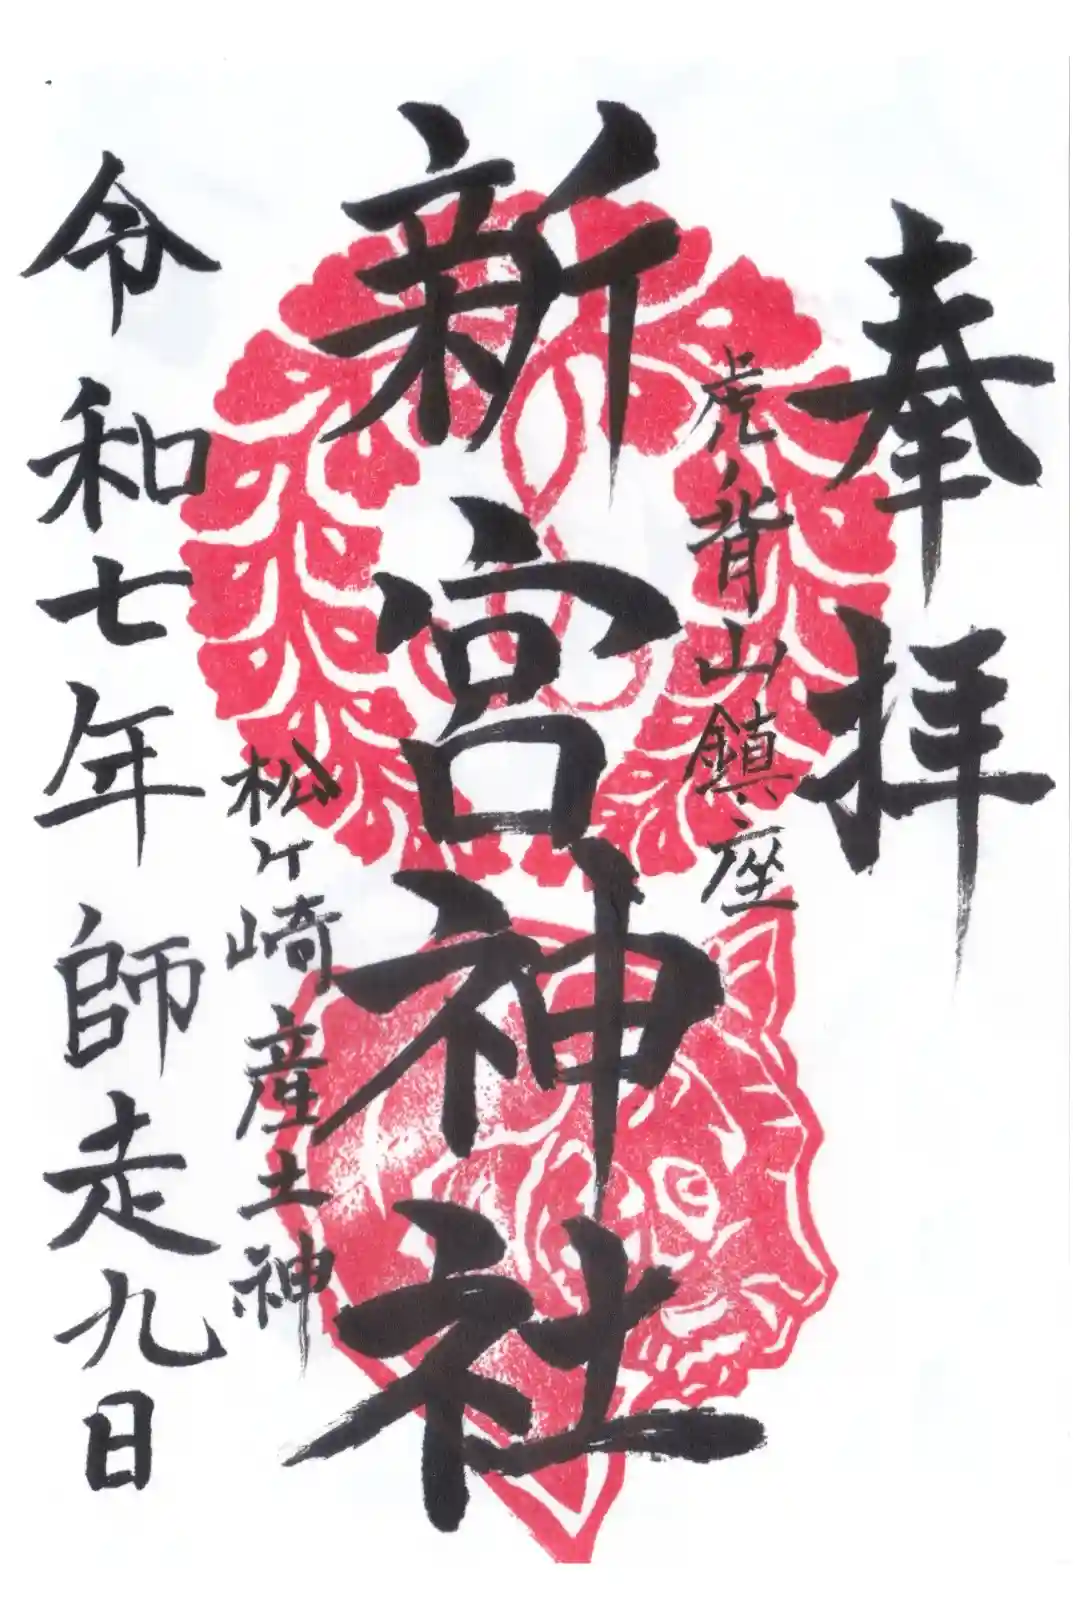 奉拝
虎ノ背山鎮座
新宮神社
松ヶ崎産土神
令和七年師走九日